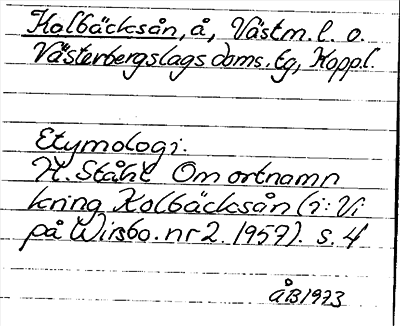 Kolbäcksån, å, Västm. l. o.
Västerbergslags doms. tg, Kopp.l.
Etymologi:
H. Ståhl Om ortnamn
kring Kolbäcksån (i: Vi
på Wirsbo. nr 2. 1957). s. 4
ÅB1973